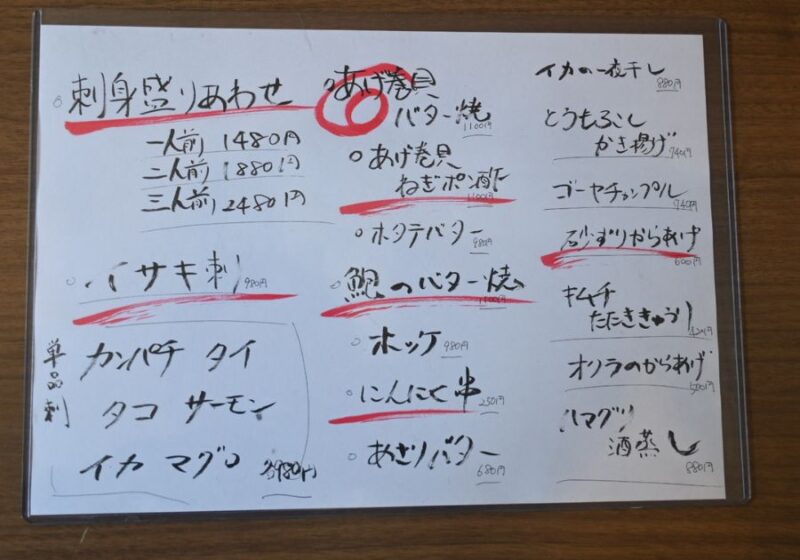 刺身盛りあわせ
一人前 1480円
二人前 1880円
三人前 2480円
イサキ刺 980円
単品刺
カンパチ タイ
タコ サーモン
イカ マグロ 各980円
あげ巻貝
バター焼 1100円
あげ巻貝
ねぎポン酢 1100円
ホタテバター 980円
鮑のバター焼 1100円
ホッケ 980円
にんにく串 250円
あさりバター 680円
イカの一夜干し 880円
とうもろこし
かき揚げ 740円
ゴーヤチャンプル 740円
砂ずりからあげ 600円
キムチ
たたききゅうり 420円
オソラのからあげ 500円
ハマグリ
酒蒸し 880円